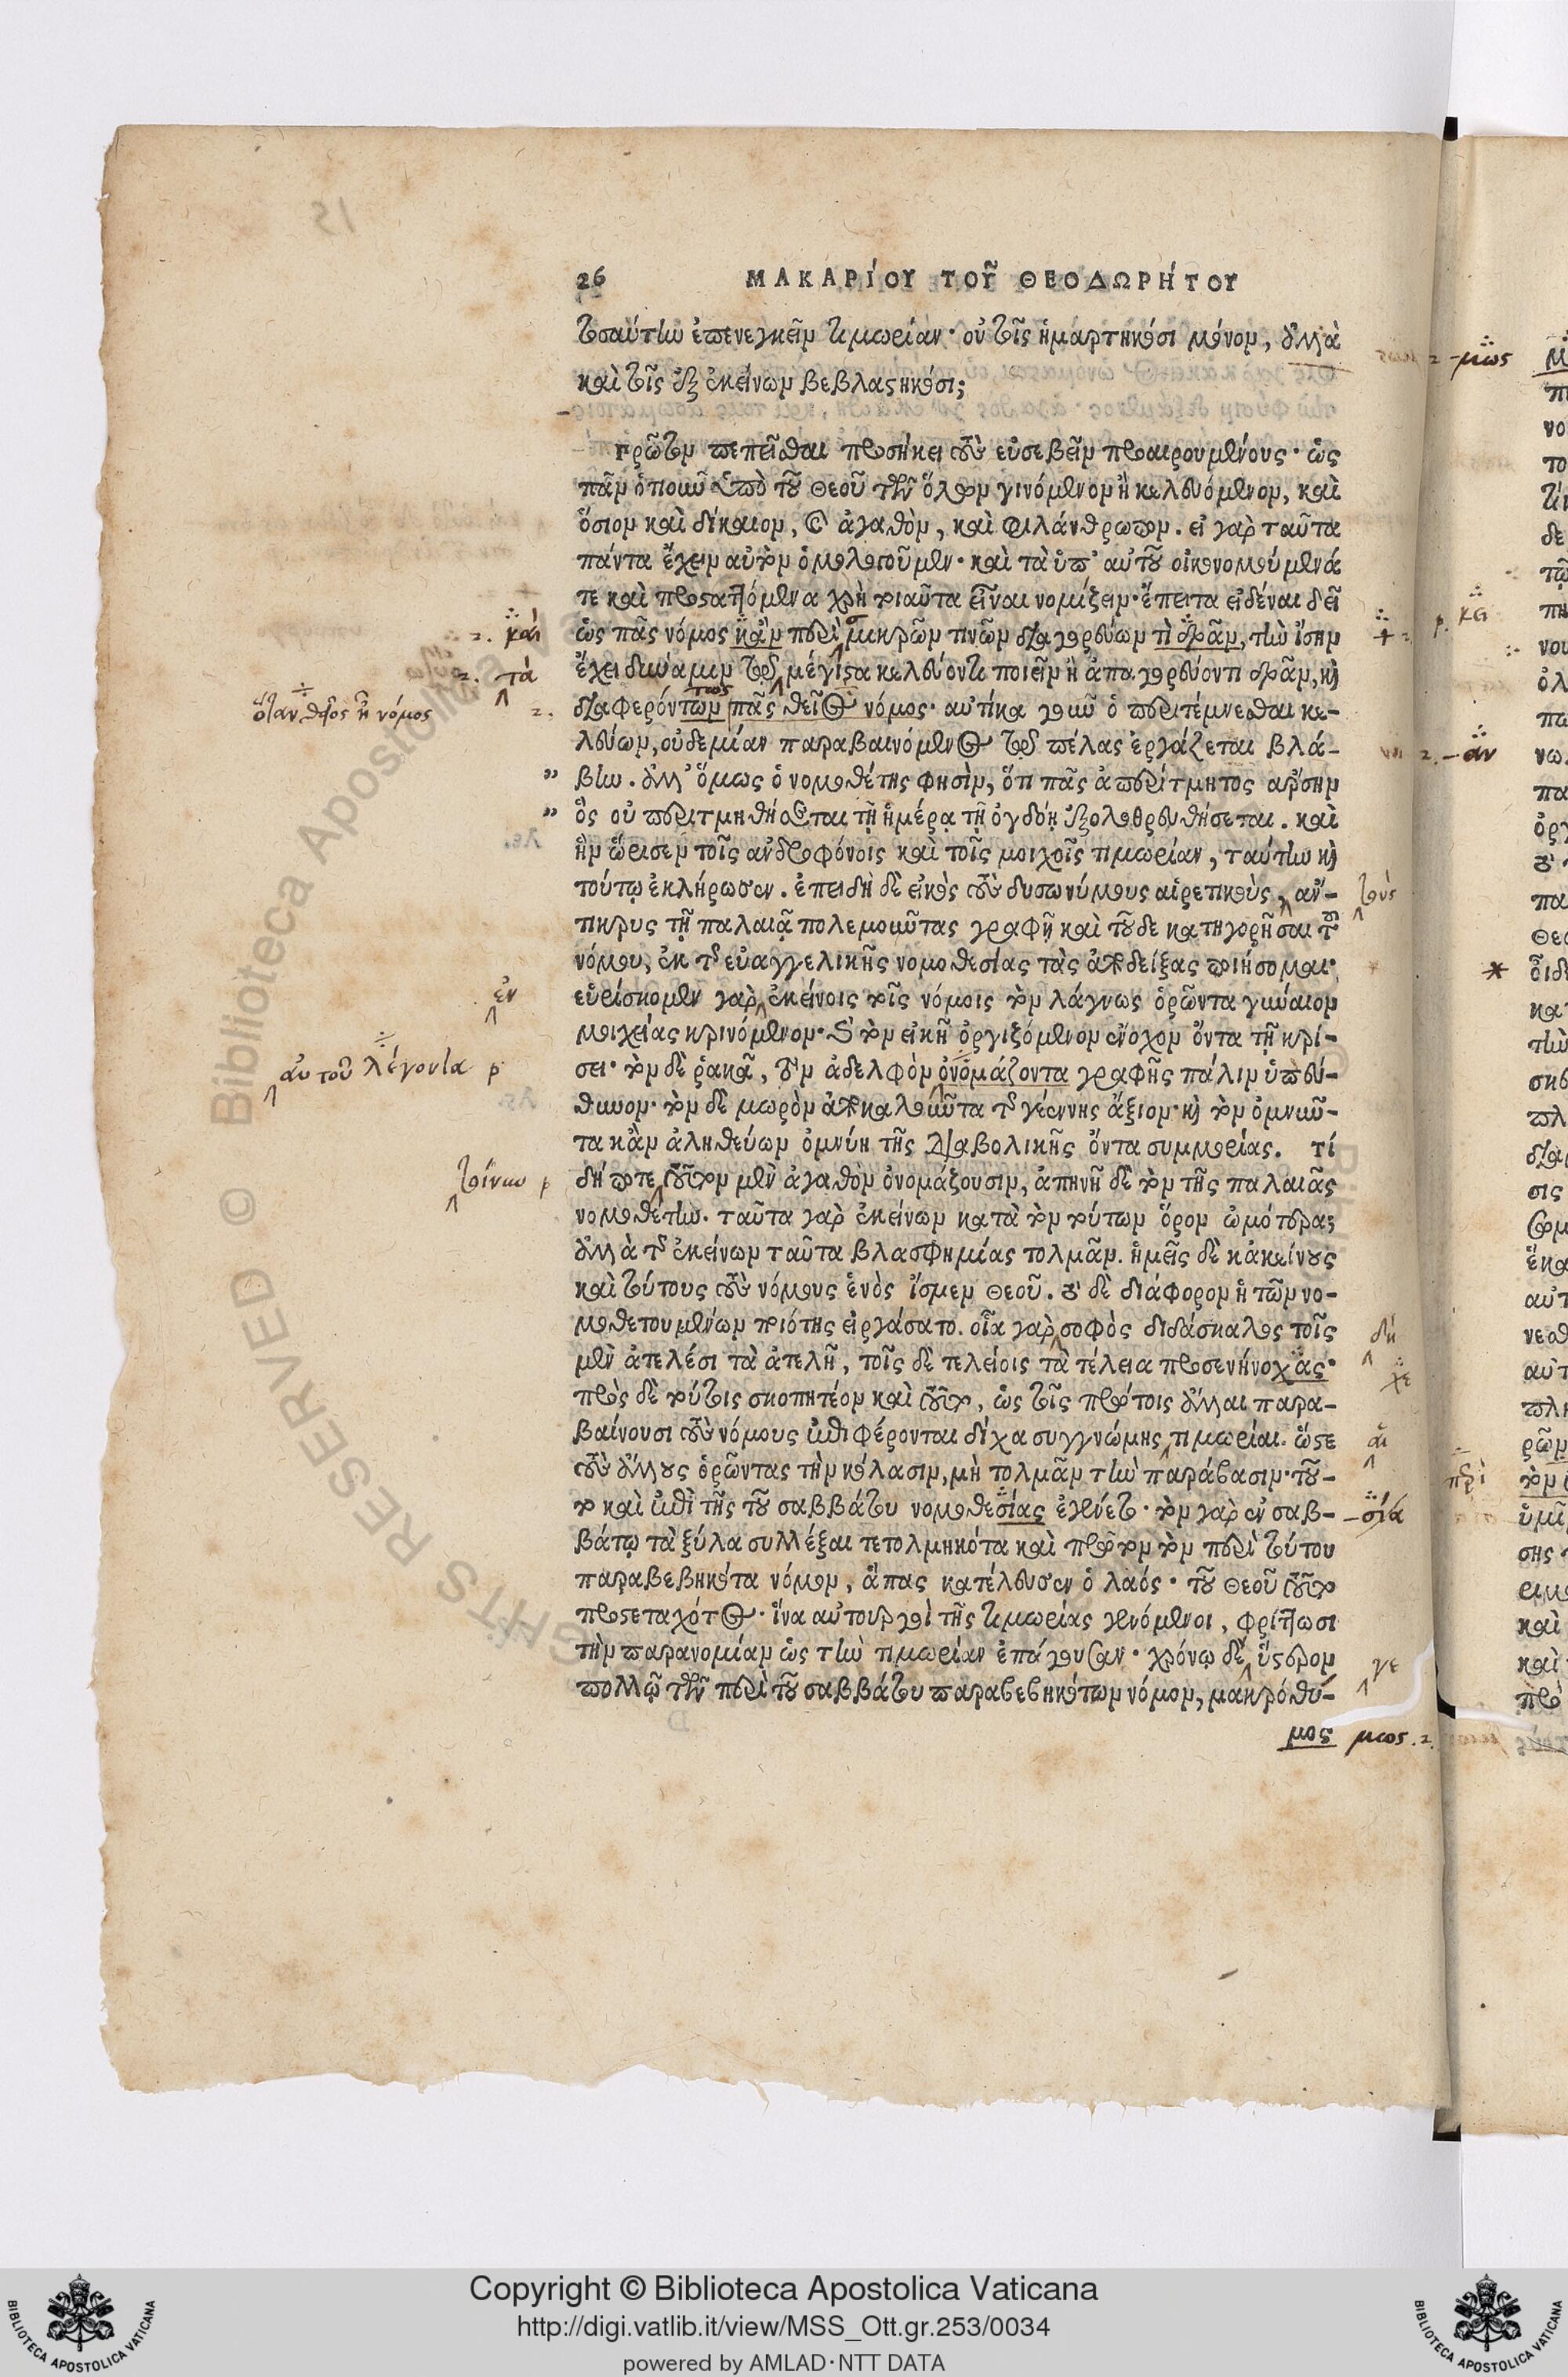 26 ΜΑΚΑΡΊΟΥ ΤΟΥ͂ ΘΕΟΔΩΡΉΤΟΥ
τοσαύτην ἐπενεγκεῖν τιμωρίαν· οὐ τοῖς ἡμαρτηκόσι μόνον, ἀλλὰ
καὶ τοῖς ἐξ ἐκείνων βεβλαστηκόσι;
Πρῶτον πεπεῖσθαι προσήκει τοὺς εὐσεβεῖν προαιρουμένους· ὡς
πᾶν ὁτιοῦν ὑπὸ τοῦ Θεοῦ τῶν ὅλων γινόμενον ἢ κελευόμενον, καὶ
ὅσιον καὶ δίκαιον, καὶ ἀγαθὸν, καὶ φιλάνθρωπον. εἰ γὰρ ταῦτα
πάντα ἔχειν αὐτὸν ὁμολογοῦμεν· καὶ τὰ ὑπ' αὐτοῦ οἰκονομούμενά
τε καὶ προσταττόμενα χρὴ τοιαῦτα εἶναι νομίζειν· ἔπειτα εἰδέναι δεῖ
ὡς πᾶς νόμος κἂν περὶ μικρῶν τινῶν διαγορεύων τὶ δρᾶν, τὴν ἴσην
ἔχει δύναμιν τῷ μέγιστα κελεύοντι ποιεῖν ἢ ἀπαγορεύοντι δρᾶν, καὶ
διαφερόντων πᾶς θεῖος νόμος· αὐτίκα γοῦν ὁ περιτέμνεσθαι κε-
λεύων, οὐδεμίαν παραβαινόμενος τῷ πέλας ἐργάζεται βλά-
" βην. ἀλλ' ὅμως ὁ νομοθέτης φησὶν, ὅτι πᾶς ἀπερίτμητος ἄρσην
" ὃς οὐ περιτμηθήσεται τῇ ἡμέρᾳ τῇ ὀγδόῃ ἐξολοθρευθήσεται. καὶ
ἣν ὥρισεν τοῖς ἀνδροφόνοις καὶ τοῖς μοιχοῖς τιμωρίαν, ταύτην καὶ
τούτῳ ἐκλήρωσεν. ἐπειδὴ δὲ εἰκὸς τοὺς δυσωνύμους αἱρετικοὺς, ἀν-
τικρυς τῇ παλαιᾷ πολεμοῦντας γραφῇ καὶ τοῦδε κατηγορῆσαι τοῦ
νόμου, ἐκ τῆς εὐαγγελικῆς νομοθεσίας τὰς ἀποδείξας ποιήσομαι·
εὑρίσκομεν γὰρ ἐκείνοις τοῖς νόμοις τὸν λάγνως ὁρῶντα γύναιον
μοιχείας κρινόμενον· καὶ τὸν εἰκῆ ὀργιζόμενον ἔνοχον ὄντα τῇ κρί-
σει· τὸν δὲ ῥακᾶ, τὸν ἀδελφὸν ὀνομάζοντα γραφῆς πάλιν ὑπεύ-
θυνον· τὸν δὲ μωρὸν ἀποκαλοῦντα τῆς γεέννης ἄξιον· καὶ τὸν ὀμνοῦν-
τα κἂν ἀληθεύων ὀμνύῃ τῆς Διαβολικῆς ὄντα συμμορίας. τί
δή ποτε τοῦτον μὲν ἀγαθὸν ὀνομάζουσιν, ἀπηνῆ δὲ τὸν τῆς παλαιᾶς
νομοθέτην. ταῦτα γὰρ ἐκείνων κατὰ τὸν τούτων ὅρον ὠμότερα;
ἀλλὰ τῆς ἐκείνων ταῦτα βλασφημίας τολμᾶν. ἡμεῖς δὲ κἀκείνους
καὶ τούτους τοὺς νόμους ἑνὸς ἴσμεν Θεοῦ. τὸ δὲ διάφορον ἡ τῶν νο-
μοθετουμένων ποιότης εἰργάσατο. οἷα γὰρ σοφὸς διδάσκαλος τοῖς
μὲν ἀτελέσι τὰ ἀτελῆ, τοῖς δὲ τελείοις τὰ τέλεια προσενήνοχας·
πρὸς δὲ τούτοις σκοπητέον καὶ τοῦτο, ὡς τοῖς πρώτοις ἄλλαι παρα-
βαίνουσι τοὺς νόμους ἐπιφέρονται δίχα συγγνώμης τιμωρίαι. ὥστε
τοὺς ἄλλους ὁρῶντας τὴν κόλασιν, μὴ τολμᾶν τὴν παράβασιν· τοῦ-
το καὶ ἐπὶ τῆς τοῦ σαββάτου νομοθεσίας ἐγένετο· τὸν γὰρ ἐν σαβ-
βάτῳ τὰ ξύλα συλλέξαι τετολμηκότα καὶ πρῶτον τὸν περὶ τούτου
παραβεβηκότα νόμον, ἅπας κατέλευσεν ὁ λαός· τοῦ Θεοῦ τοῦτο
προστεταχότος· ἵνα αὐτουργοὶ τῆς τιμωρίας γενόμενοι, φρίττωσι
τὴν παρανομίαν ὡς τὴν τιμωρίαν ἐπάγουσαν· χρόνῳ δὲ ὕστερον
πολλῷ τῶν περὶ τοῦ σαββάτου παραβεβηκότων νόμον, μακρόθυ-
μος
μως. 2.
2. καὶ
2. τὰ
ὅταν θεῖος ᾖ νόμος 2.
τως
ἐν
αὐτοῦ λέγοντα p
τοίνυν p
-μως
-άν
τοὺς
δή
χε
αἱ
-σία
γε
Copyright © Biblioteca Apostolica Vaticana
http://digi.vatlib.it/view/MSS_Ott.gr.253/0034
powered by AMLAD·NTT DATA